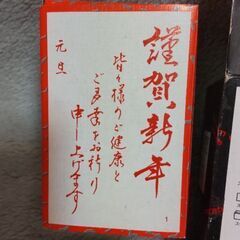 謹賀新年
皆々様のご健康と
ご多幸をお祈り
申し上げます
元旦